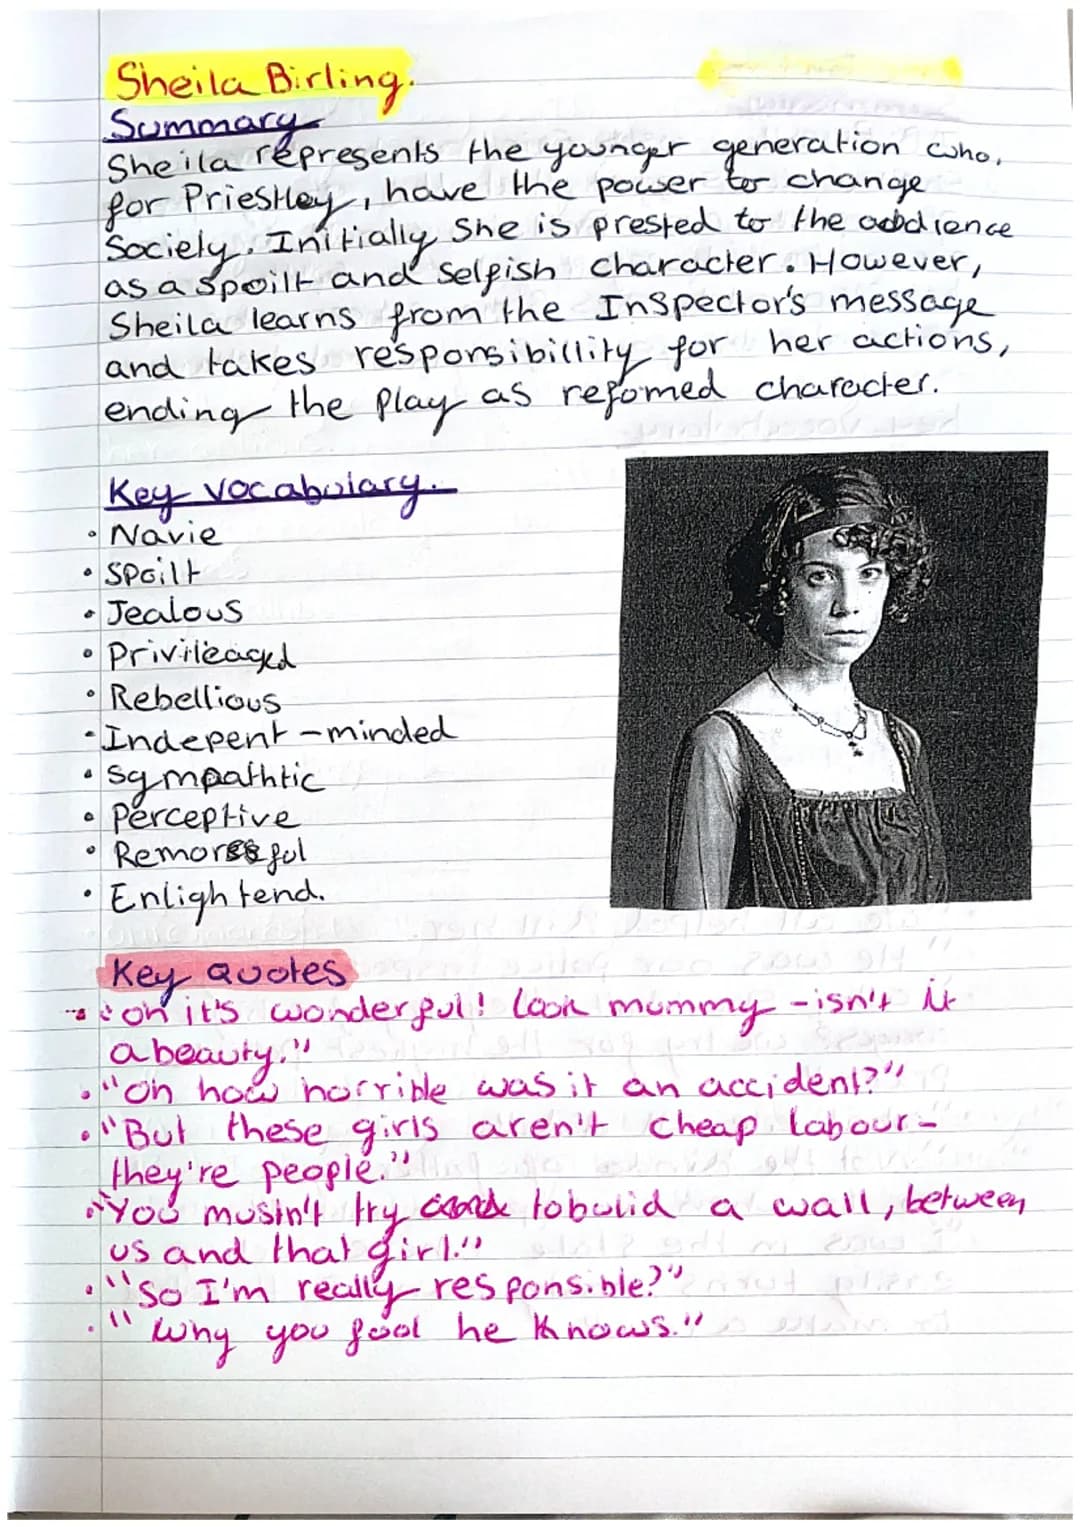 Sheila Birling.
Summary
Sheila represents the younger generation who,
for Priestley, have the power to change
Society. Initially She is prested to the audience
as a spoilt and selfish character. However,
Sheila learns from the Inspector's message
and takes responsibillity for her actions,
ending the play as refomed character.
Key vocabulary.
• Navie
• Spoilt
• Jealous
• Privileaged
• Rebellious
• Indepent-minded
• Sympathtic
• Perceptive
• Remorseful
• Enlightend.
Key quotes
• "oh it's wonderful! look mummy - isn't it
a beauty."
• "oh how horrible was it an accident?"
• "But these girls aren't cheap labour -
they're people."
• "You mustn't try to bulid a wall, between
us and that girl."
• "So I'm really responsible?"
• "Why you fool he knows."